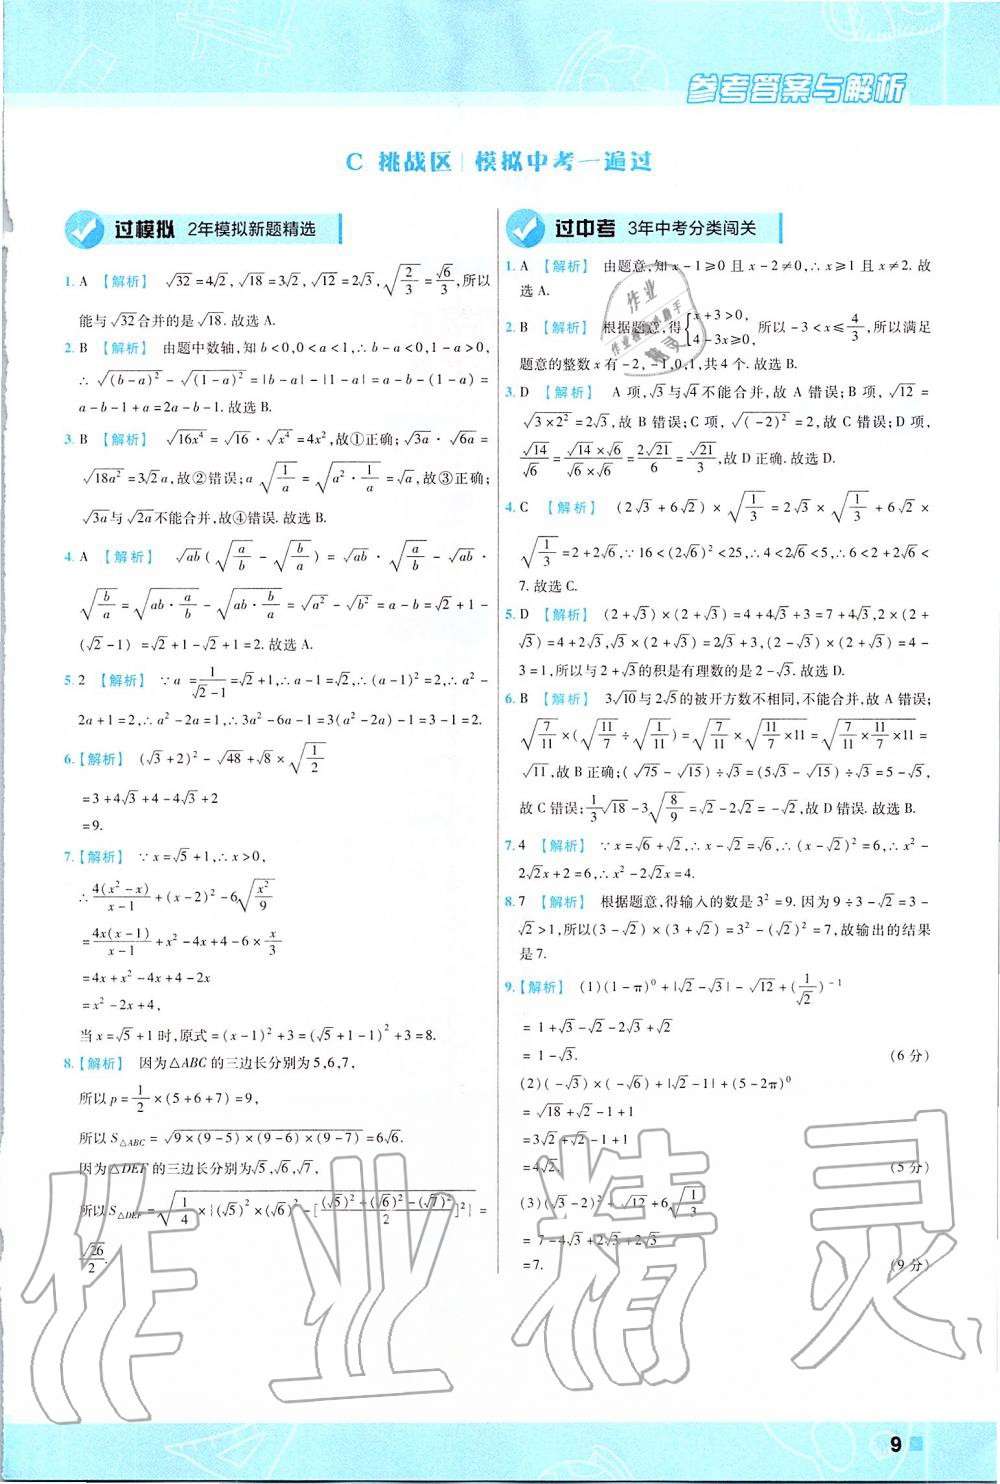 参考答案与解析
C 挑战区 | 模拟中考一遍过
过模拟 2年模拟新题精选
1. A 【解析】 √32=4√2,√18=3√2,√12=2√3,√(2/3)=√6/3,所以
能与√32合并的是√18.故选A.
2. B 【解析】 由题中数轴,知b<0,0<a<1,∴a-b>0,1-a>0,
∴√(b-a)²-√(1-a)²=|b-a|-|1-a|=a-b-(1-a)=
a-b-1+a=2a-b-1.故选B.
3. B 【解析】 √16x⁴=√16·√x⁴=4x²,故①正确;√3a·√6a=
√18a²=3√2a,故②错误;a√(1/a)=√(a²·1/a)=√a,故③正确;
√3a与√2a不能合并,故④错误.故选B.
4. A 【解析】 √ab(√(a/b)-√(b/a))=√ab·√(a/b)-√ab·
√(b/a)=√(ab·a/b)-√(ab·b/a)=√a²-√b²=a-b=√2+1-
(√2-1)=√2+1-√2+1=2.故选A.
5. 2 【解析】 ∵a=1/(√2-1)=√2+1,∴a-1=√2,∴(a-1)²=a²-
2a+1=2,∴a²-2a=1,∴3a²-6a-1=3(a²-2a)-1=3-1=2.
6.【解析】 (√3+2)²-√48+√8×√(1/2)
=3+4√3+4-4√3+2
=9.
7.【解析】 ∵x=√5+1,∴x>0,
∴4(x²-x)/(x-1)+(x-2)²-6√(x²/9)
=4x(x-1)/(x-1)+x²-4x+4-6×x/3
=4x+x²-4x+4-2x
=x²-2x+4,
当x=√5+1时,原式=(x-1)²+3=(√5+1-1)²+3=8.
8.【解析】 因为△ABC的三边长分别为5,6,7,
所以p=1/2×(5+6+7)=9,
所以S△ABC=√(9×(9-5)×(9-6)×(9-7))=6√6.
因为△DEF的三边长分别为√5,√6,√7,
所以S△DEF=√(1/4×{(√5)²×(√6)²-[((√5)²+(√6)²-(√7)²)/2]²})=
√26/2.
过中考 3年中考分类闯关
1. A 【解析】 由题意,知x-1≥0且x-2≠0,∴x≥1且x≠2.故
选A.
2. B 【解析】 根据题意,得{x+3>0, 4-3x≥0, 所以-3<x≤4/3,所以满足
题意的整数x有-2,-1,0,1,共4个.故选B.
3. D 【解析】 A项,√3与√4不能合并,故A错误;B项,√12=
√(3×2²)=2√3,故B错误;C项,√(-2)²=2,故C错误;D项,
√14/√6=(√14×√6)/(√6×√6)=2√21/6=√21/3,故D正确.故选D.
4. C 【解析】 (2√3+6√2)×√(1/3)=2√3×√(1/3)+6√2×
√(1/3)=2+2√6,∵16<(2√6)²<25,∴4<2√6<5,∴6<2+2√6<
7.故选C.
5. D 【解析】 (2+√3)×(2+√3)=4+4√3+3=7+4√3,2×(2+
√3)=4+2√3,√3×(2+√3)=2√3+3,(2-√3)×(2+√3)=4-
3=1,所以与2+√3的积是有理数的是2-√3.故选D.
6. B 【解析】 3√10与2√5的被开方数不相同,不能合并,故A错误;
√(7/11)×(√(11/7)÷√(1/11))=√(7/11)×√(11/7×11)=√(7/11×11/7×11)=
√11,故B正确;(√75-√15)÷√3=(5√3-√15)÷√3=5-√5,
故C错误;1/3√18-3√(8/9)=√2-2√2=-√2,故D错误.故选B.
7. 4 【解析】 ∵x=√6+√2,∴x-√2=√6,∴(x-√2)²=6,∴x²-
2√2x+2=6,∴x²-2√2x=4.
8. 7 【解析】 根据题意,得输入的数是3²=9.因为9÷3-√2=3-
√2>1,所以(3-√2)×(3+√2)=3²-(√2)²=7,故输出的结果
是7.
9.【解析】 (1)(1-π)⁰+|√2-√3|-√12+(1/√2)⁻¹
=1+√3-√2-2√3+√2
=1-√3. (6分)
(2)(-√3)×(-√6)+|√2-1|+(5-2π)⁰
=√18+√2-1+1
=3√2+√2-1+1
=4√2. (5分)
(3)(√3-2)²-√12+6√(1/3)
=7-4√3-2√3+2√3
=7. (9分)
9
作业精灵
作业
精灵